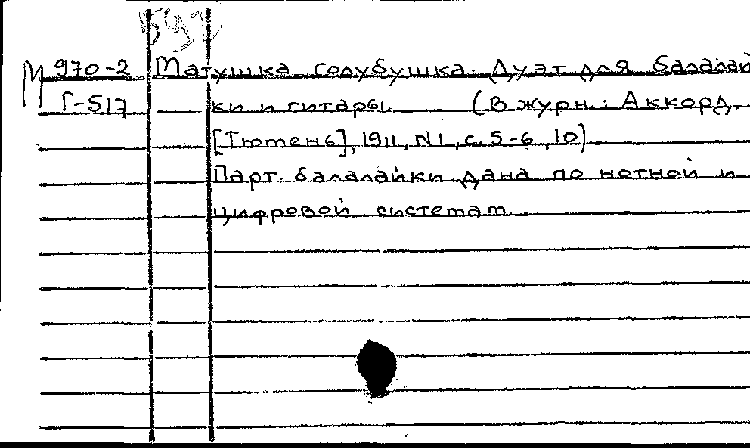 М 970-2 Матушка голубушка. Дуэт для балалай
Г-517 ки и гитары. (В журн.: Аккорд.
[Тюмень], 1911, N1, с. 5-6, 10)
Парт. балалайки дана по нотной и
цифровой системам.